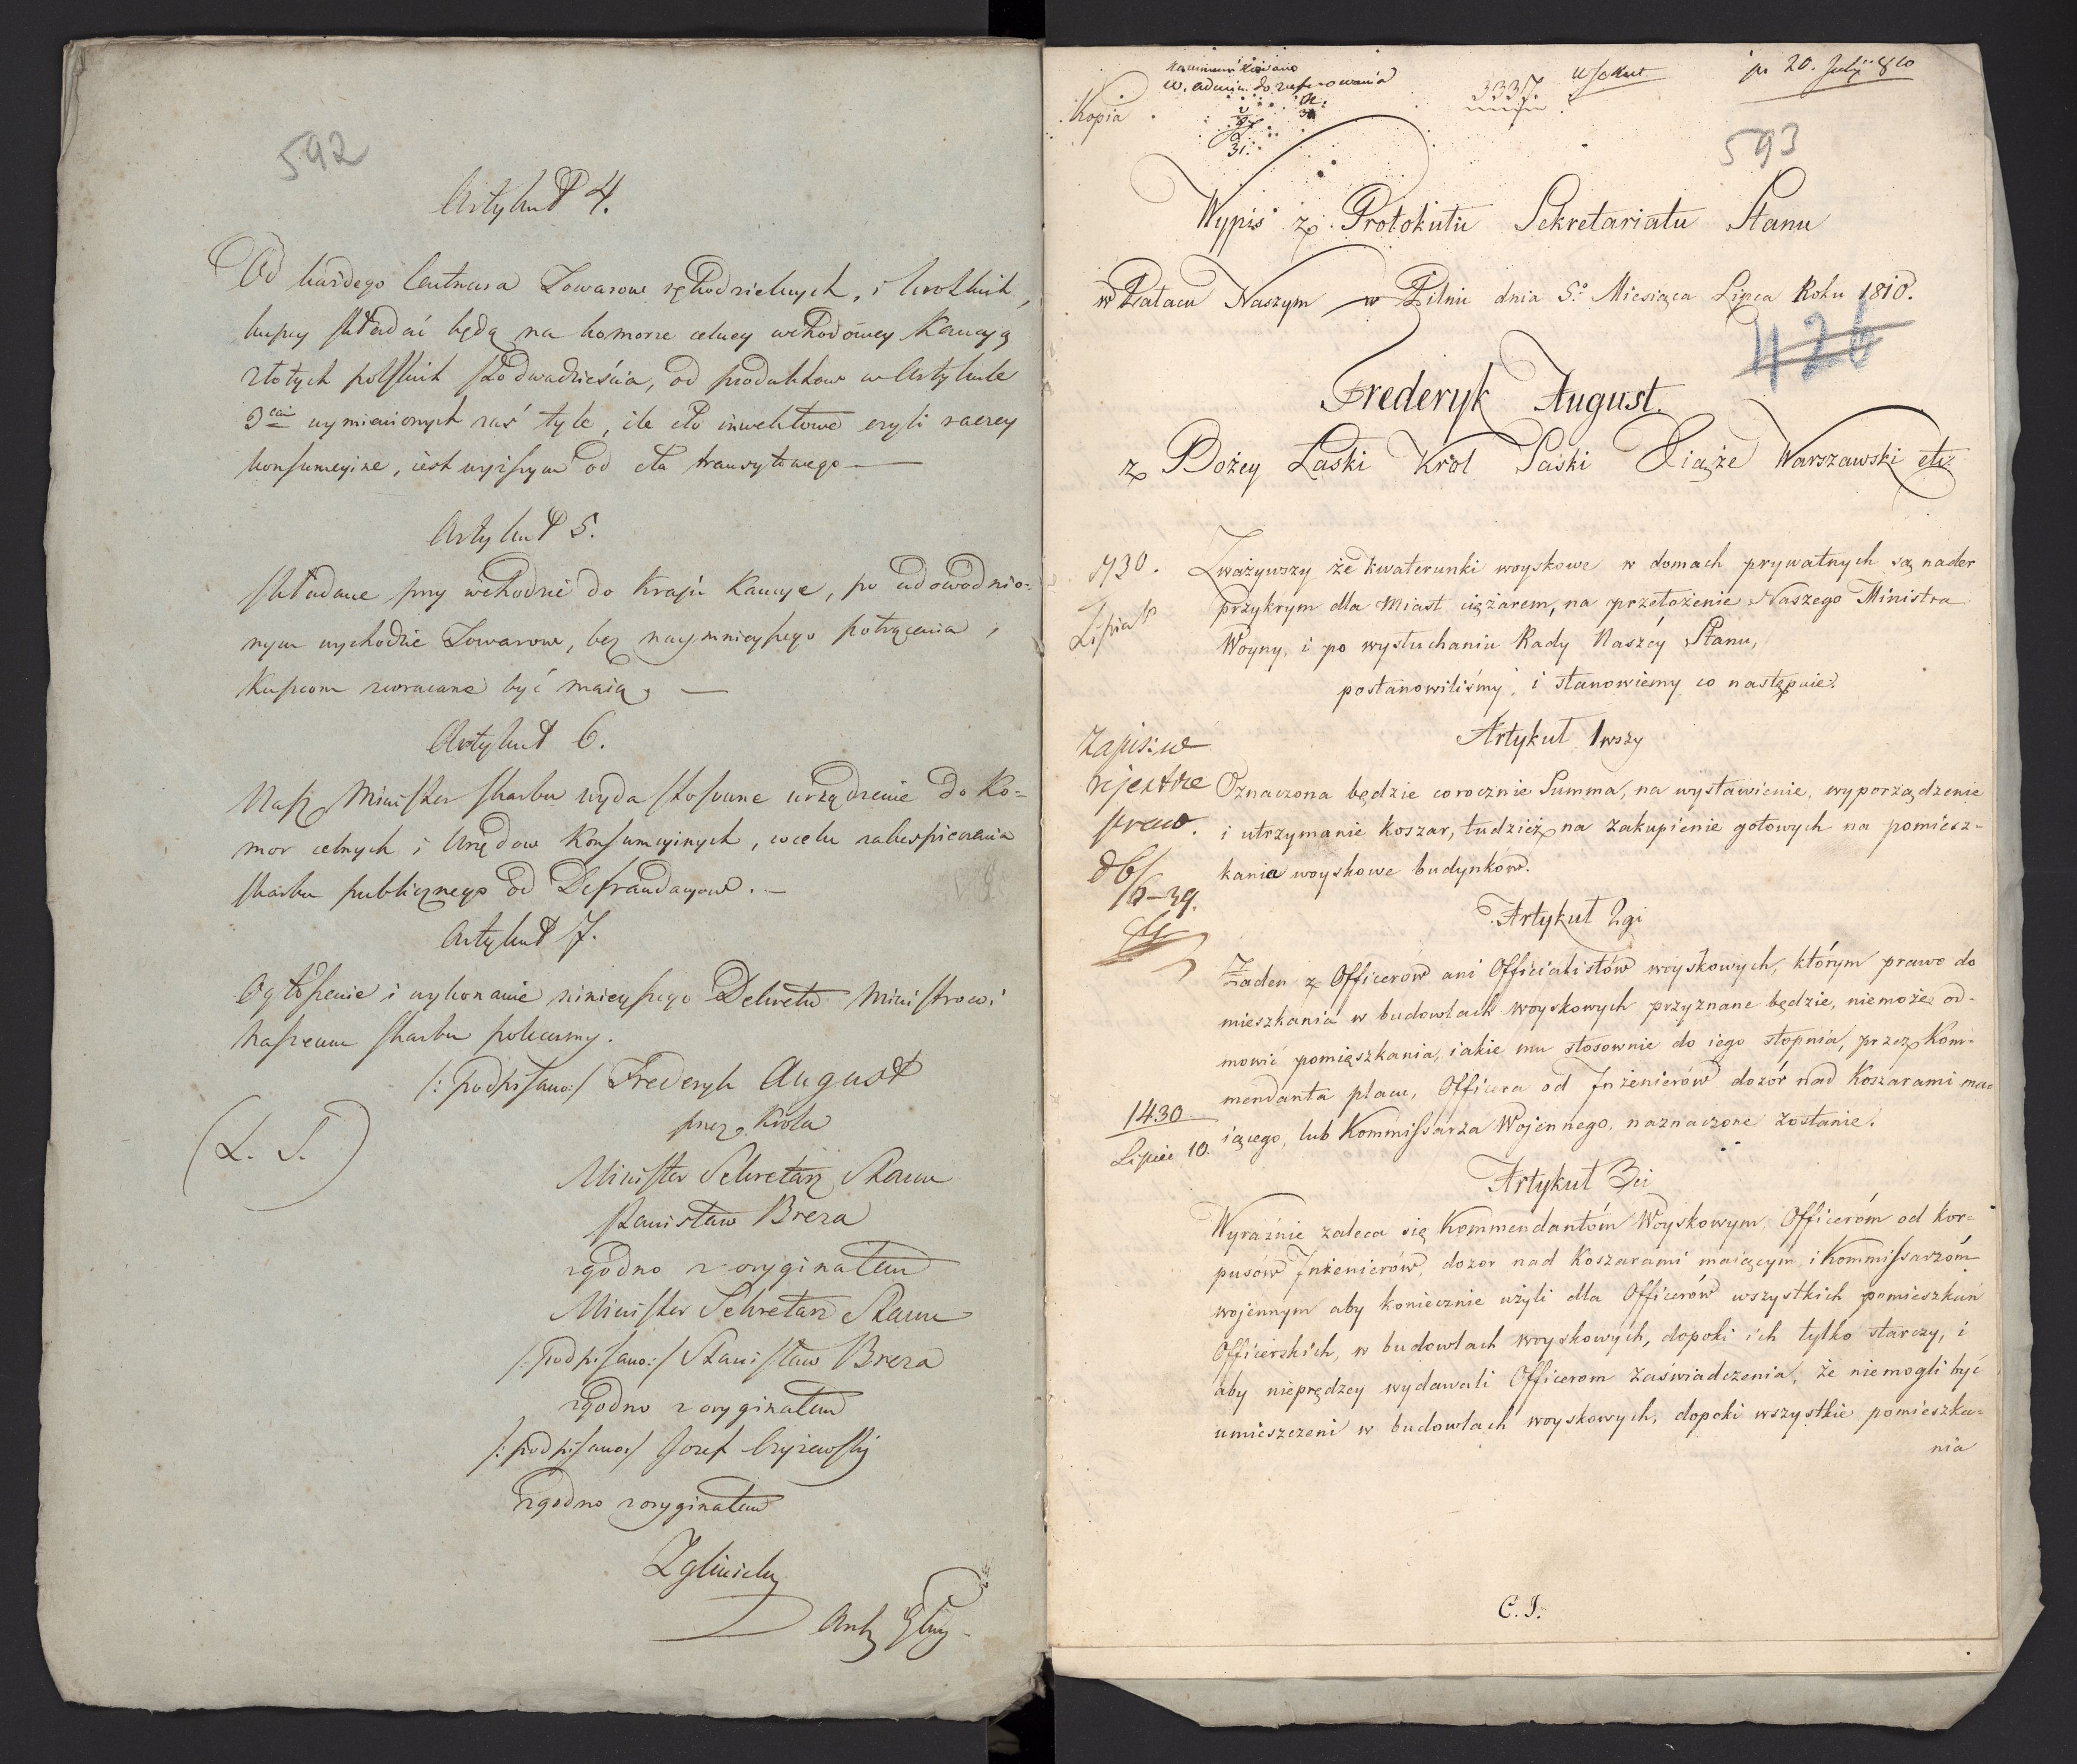 592
Artykuł 4.
Od każdego Centnara Towarow rękodzielnych, i krotkich,
kupcy składać będą na komorze celney wchodowey Kaucyą
złotych polskich sto dwadzieścia, od produktow w Artykule
3cim wymienionych zaś tyle, ile cło inwektowe czyli raczey
konsumcyine, iest wyższym od cła transytowego —
Artykuł 5.
Składane przy wchodzie do Kraju Kaucye, po udowodnio-
nym wychodzie Towarow, bez naymnieyszego potrącenia,
Kupcom zwracane być maią. —
Artykuł 6.
Nasz Minister skarbu wyda stosowne urządzenie do Ko-
mor celnych i Urzędow Konsumcyinych, w celu zabespieczenia
skarbu publicznego od Defraudacyow. —
Artykuł 7.
Ogłoszenie i wykonanie ninieyszego Dekretu Ministrowi
Naszemu skarbu polecamy.
/: podpisano :/ Frederyk August
przez Krola
(L. S.)
Minister Sekretarz Stanu
Stanisław Breza
zgodno z oryginałem
Minister Sekretarz Stanu
/: podpisano :/ Stanisław Breza
zgodno z oryginałem
/: podpisano :/ Jozef
zgodno z oryginałem
Zglinicki
Kopia
3337.
20. July 810
593
Wypis z Protokułu Sekretariatu Stanu
w Pałacu Naszym w Pilniu dnia 5o Miesiąca Lipca Roku 1810.
426
Frederyk August.
z Bożey Łaski Krol Saski Xiąże Warszawski etc.
Zważywszy że kwaterunki woyskowe w domach prywatnych są nader
przykrym dla Miast ciężarem, na przełożenie Naszego Ministra
Woyny, i po wysłuchaniu Rady Naszéy Stanu,
postanowiliśmy, i stanowiemy co następuie.
Artykuł 1wszy
Zapis: w
rejestrze
spraw.
Oznaczona będzie corocznie Summa, na wystawienie, wyporządzenie
i utrzymanie koszar, tudzież na zakupienie gotowych na pomiesz-
kania woyskowe budynków.
Artykuł 2gi
Żaden z Officerow ani Officialistów woyskowych, którym prawo do
mieszkania w budowlach woyskowych przyznane będzie, niemoże od-
mowić pomięszkania, iakie mu stosownie do iego stopnia, przez Kom-
mendanta placu, Officera od Inżenierów dozór nad Koszarami ma-
iącego, lub Kommissarza Wojennego, naznaczone zostanie.
1430
Lipiec 10.
Artykuł 3ci
Wyraźnie zaleca się Kommendantóm Woyskowym, Officeróm od kor-
pusów Inżenierów, dozor nad Koszarami maiącym, i Kommissarzóm
wojennym aby koniecznie użyli dla Officerów wszystkich pomieszkań
Officerskich, w budowlach woyskowych, dopoki ich tylko starczy, i
aby nieprędzey wydawali Officerom zaświadczenia, że niemogli być
umieszczeni w budowlach woyskowych, dopoki wszystkie pomieszka-
nia
C. I.